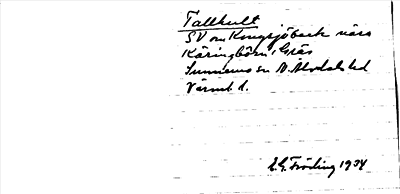 Tallhult
SV om Kungsjöberk nära
Käringbörn, Gräs
Sunnemo sn N. Älvdals hd
Värml.
E.G. Fröding 1934